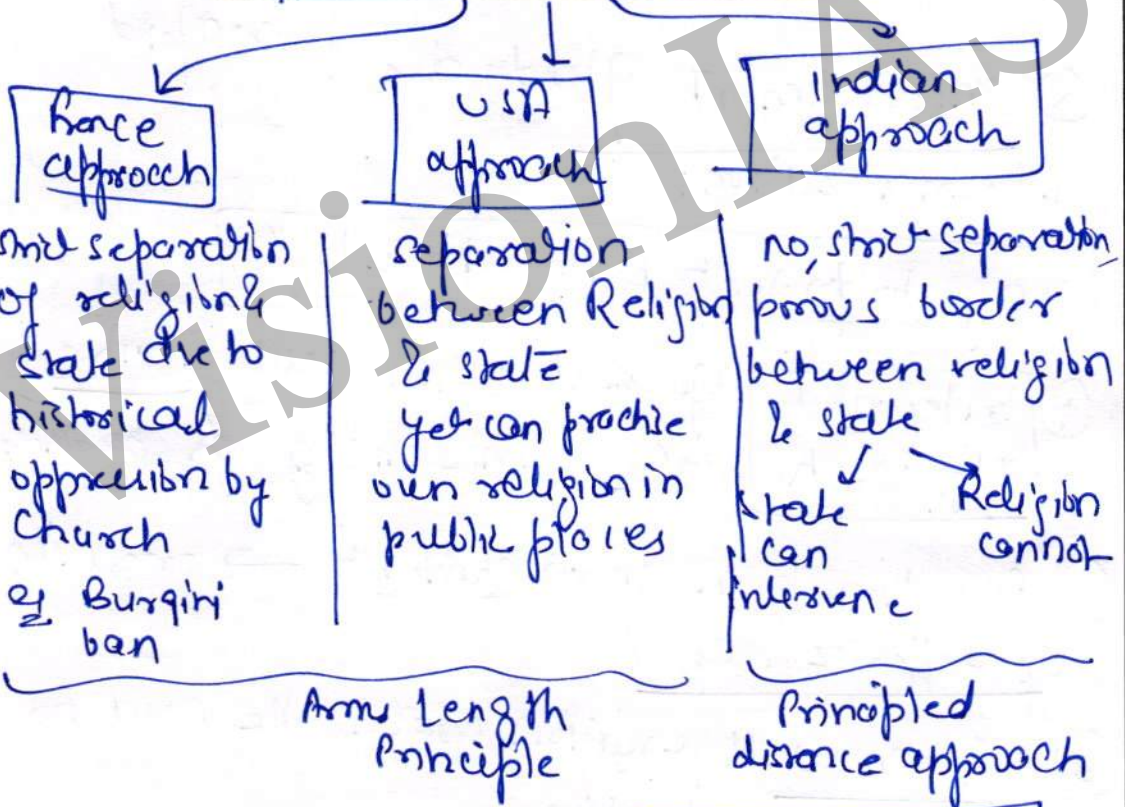 France
approach
strict separation
of religion &
state due to
historical
oppression by
Church
eg Burqini
ban
USA
approach
separation
between Religion
& state
yet can practise
own religion in
public places
Indian
approach
no, strict separation,
porous border
between religion
& state
State
can
intervene
Religion
cannot
Arms Length
Principle
Principled
distance approach
VisionIAS